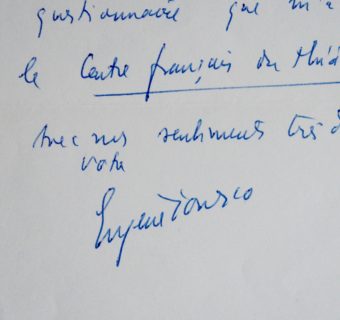 questionnaire que m'a
le Centre français du Théâ
Avec mes sentiments très d
votre
Eugène Ionesco